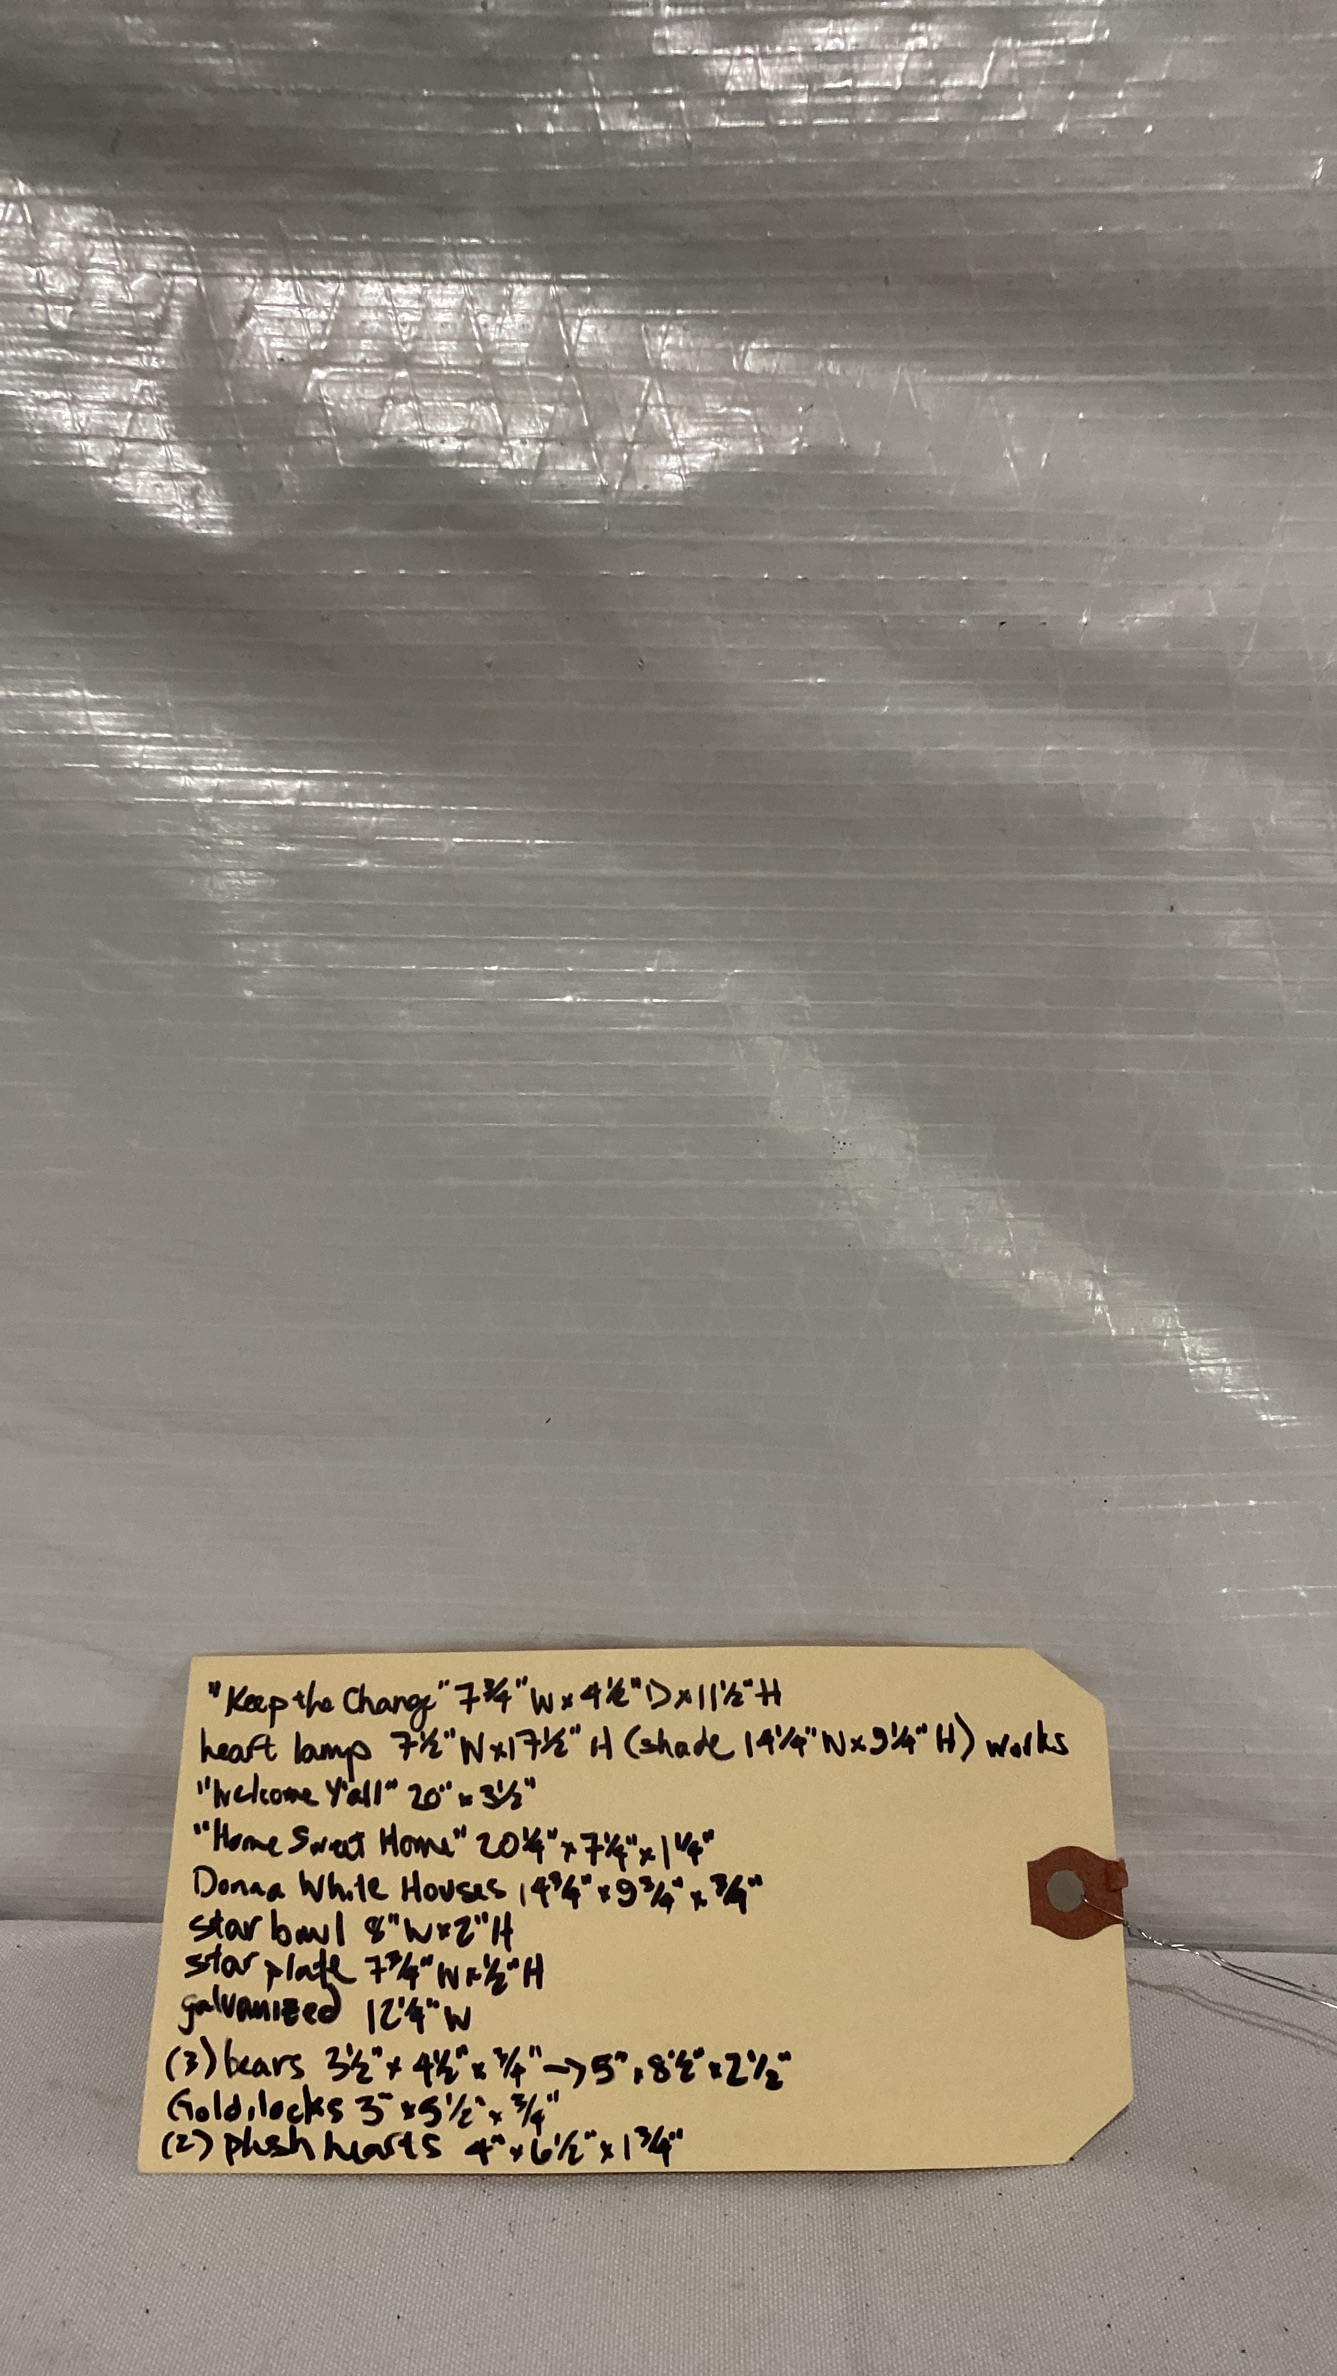 "Keep the Change" 7 3/4" W x 4 1/2" D x 11 1/2" H
heart lamp 7 1/2" W x 17 1/2" H (shade 14 1/4" W x 9 1/4" H) works
"Welcome Y'all" 20" x 3 1/2"
"Home Sweet Home" 20 1/4" x 7 1/4" x 1 1/4"
Donna White Houses 14 3/4" x 9 3/4" x 3/4"
star bowl 8" W x 2" H
star plate 7 3/4" W x 1/2" H
galvanized 12 1/4" W
(3) bears 3 1/2" x 4 1/2" x 3/4" -> 5" x 8 1/2" x 2 1/2"
Goldilocks 3" x 5 1/2" x 3/4"
(2) plush hearts 4" x 6 1/2" x 1 3/4"